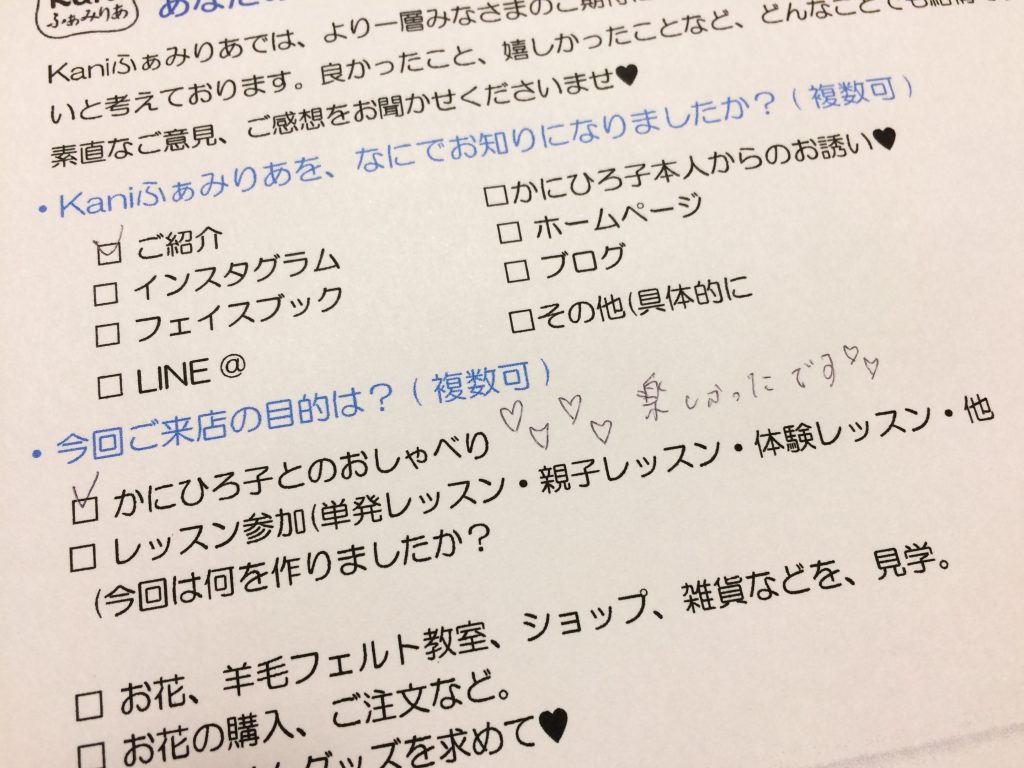 Kani
ふぁみりあ
あなた
Kaniふぁみりあでは、より一層みなさまのご期待に
いと考えております。良かったこと、嬉しかったことなど、どんなことでも結構で
素直なご意見、ご感想をお聞かせくださいませ♥
・Kaniふぁみりあを、なにでお知りになりましたか？(複数可)
☑ ご紹介
□ インスタグラム
□ フェイスブック
□ LINE @
□かにひろ子本人からのお誘い♥
□ ホームページ
□ ブログ
□その他(具体的に
・今回ご来店の目的は？(複数可)
☑ かにひろ子とのおしゃべり ♡♡♡♡ 楽しかったです♡♡
□ レッスン参加(単発レッスン・親子レッスン・体験レッスン・他
(今回は何を作りましたか？
□ お花、羊毛フェルト教室、ショップ、雑貨などを、見学。
□ お花の購入、ご注文など。
グッズを求めて♥